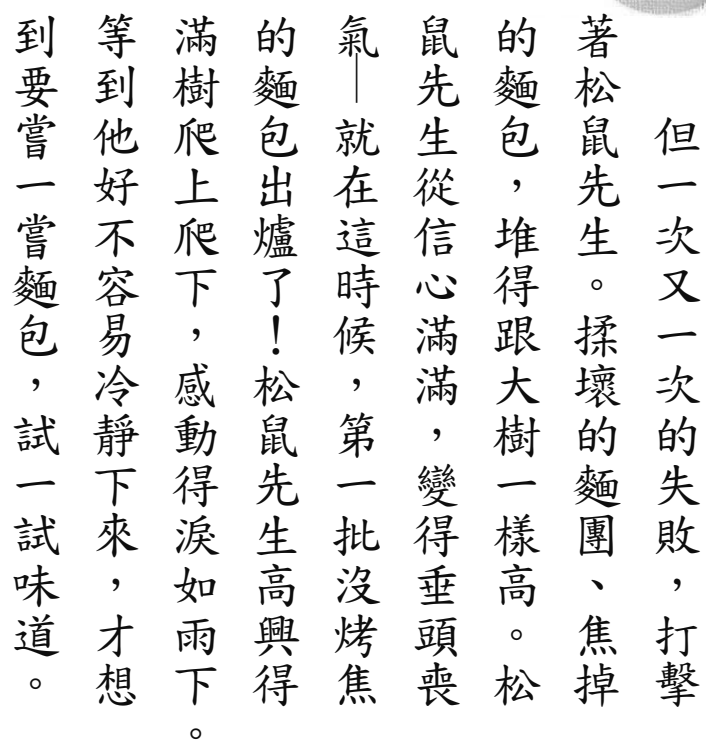 但一次又一次的失敗，打擊
著松鼠先生。揉壞的麵團、焦掉
的麵包，堆得跟大樹一樣高。松
鼠先生從信心滿滿，變得垂頭喪
氣—就在這時候，第一批沒烤焦
的麵包出爐了！松鼠先生高興得
滿樹爬上爬下，感動得淚如雨下。
等到他好不容易冷靜下來，才想
到要嘗一嘗麵包，試一試味道。